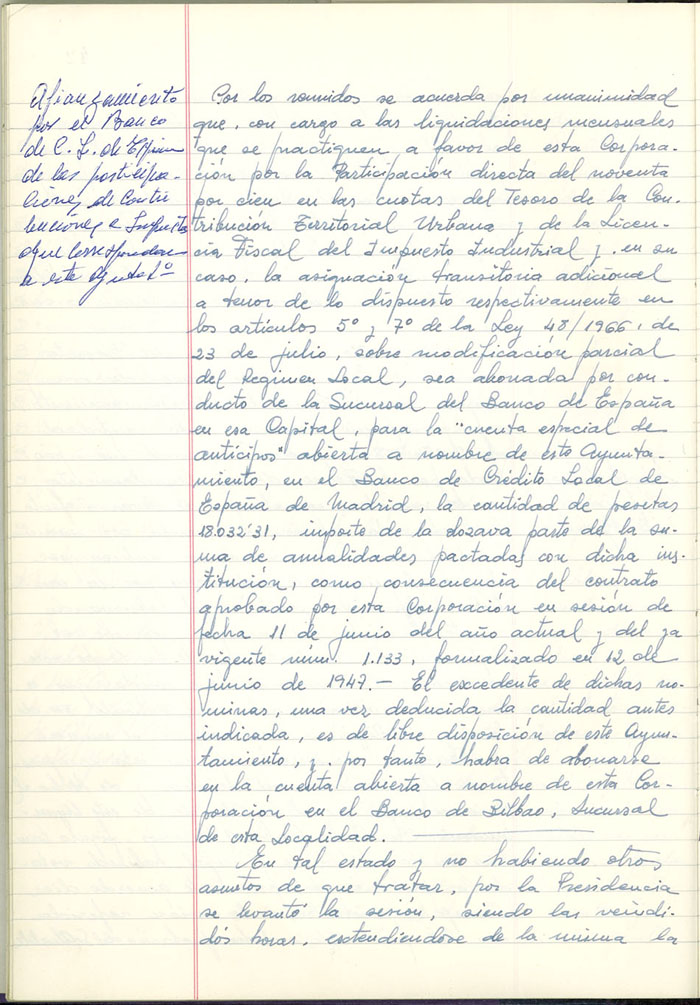 Afianzamiento
por el Banco
de C. L. de España
de las participa-
ciones de Contri
buciones e Impuestos
que corresponden
a este Ayunto.
Por los reunidos se acuerda por unanimidad
que, con cargo a las liquidaciones mensuales
que se practiquen a favor de esta Corpora-
ción por la Participación directa del noventa
por cien en las cuotas del Tesoro de la Con-
tribución Territorial Urbana y de la Licen-
cia Fiscal del Impuesto Industrial y, en su
caso, la asignación transitoria adicional
a tenor de lo dispuesto respectivamente en
los artículos 5º y 7º de la Ley 48/1966, de
23 de julio, sobre modificación parcial
del Regimen Local, sea abonada por con-
ducto de la Sucursal del Banco de España
en esa Capital, para la "cuenta especial de
anticipos" abierta a nombre de este Ayunta-
miento, en el Banco de Crédito Local de
España de Madrid, la cantidad de pesetas
18.032'31, importe de la dozava parte de la su-
ma de anualidades pactadas con dicha ins-
titución, como consecuencia del contrato
aprobado por esta Corporación en sesión de
fecha 11 de junio del año actual y del ya
vigente núm. 1.133, formalizado en 12 de
junio de 1947.- El excedente de dichas nó-
minas, una vez deducida la cantidad antes
indicada, es de libre disposición de este Ayun-
tamiento, y, por tanto, habra de abonarse
en la cuenta abierta a nombre de esta Cor-
poración en el Banco de Bilbao, Sucursal
de esta Localidad.
En tal estado y no habiendo otros
asuntos de que tratar, por la Presidencia
se levantó la sesión, siendo las veindi-
dós horas, extendiendose de la misma la